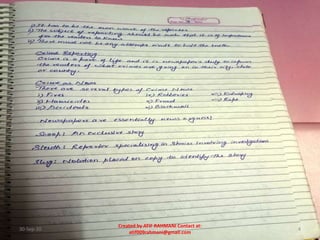 i) It has to be the own work of the reporter
ii) The subject of reporting should be such that it is of importance
for the readers to know
iii) There must not be any attempts made to hide the truth
Crime Reporting
Crime is a part of life and it is newspapers duty to inform
the readers of what crimes are going on in their city, state
or country.
Crime as News
There are several types of Crime News
i) Fires iv) Robberies vii) Kidnaping
ii) Homicides v) Fraud viii) Rape
iii) Accidents vi) Blackmail
Newspapers are essentially news organs!
Scoop: An exclusive story
Sleuth: Reporter specialising in stories involving investigations
Slug: Notation placed on copy to identify the story
30-Sep-20
Created by ATIF RAHMANI Contact at:
atif009rahmani@gmail.com